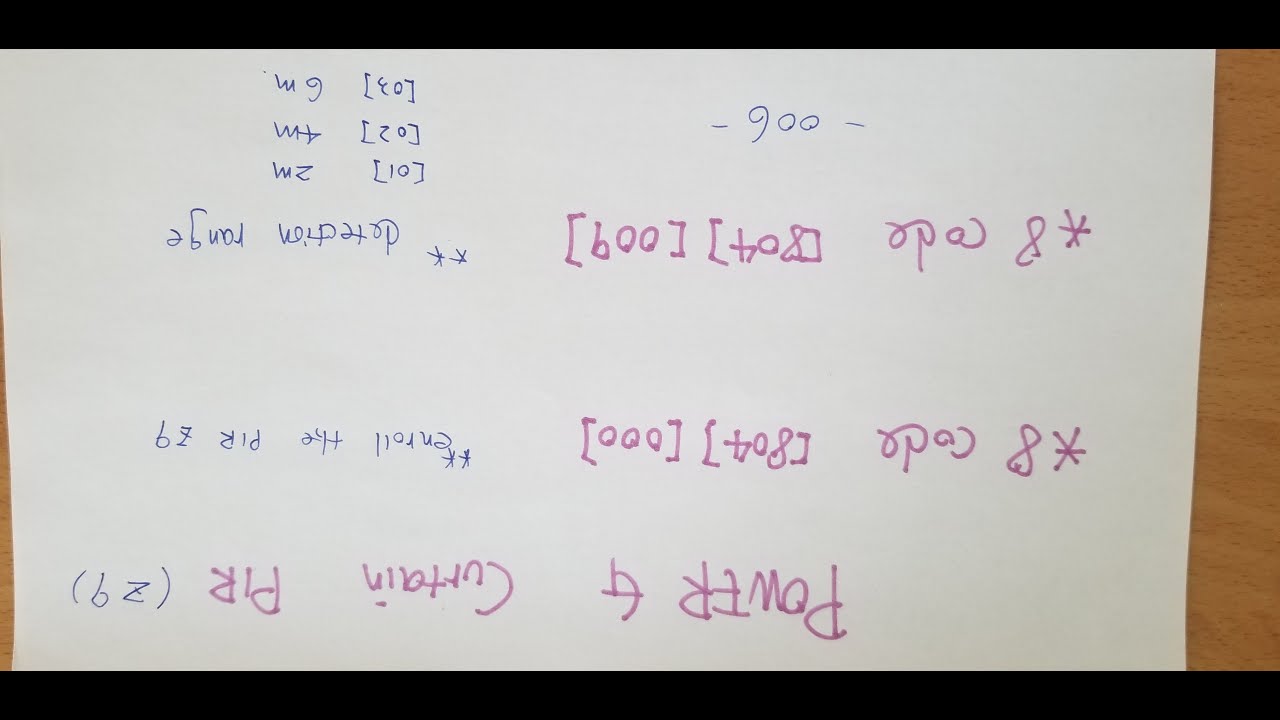 POWER G Curtain PIR (Z9)
*8 code [804] [000] **enroll the PIR Z9
*8 code [804] [009] ** detection range
[01] 2m
- 006 - [02] 4m
[03] 6m